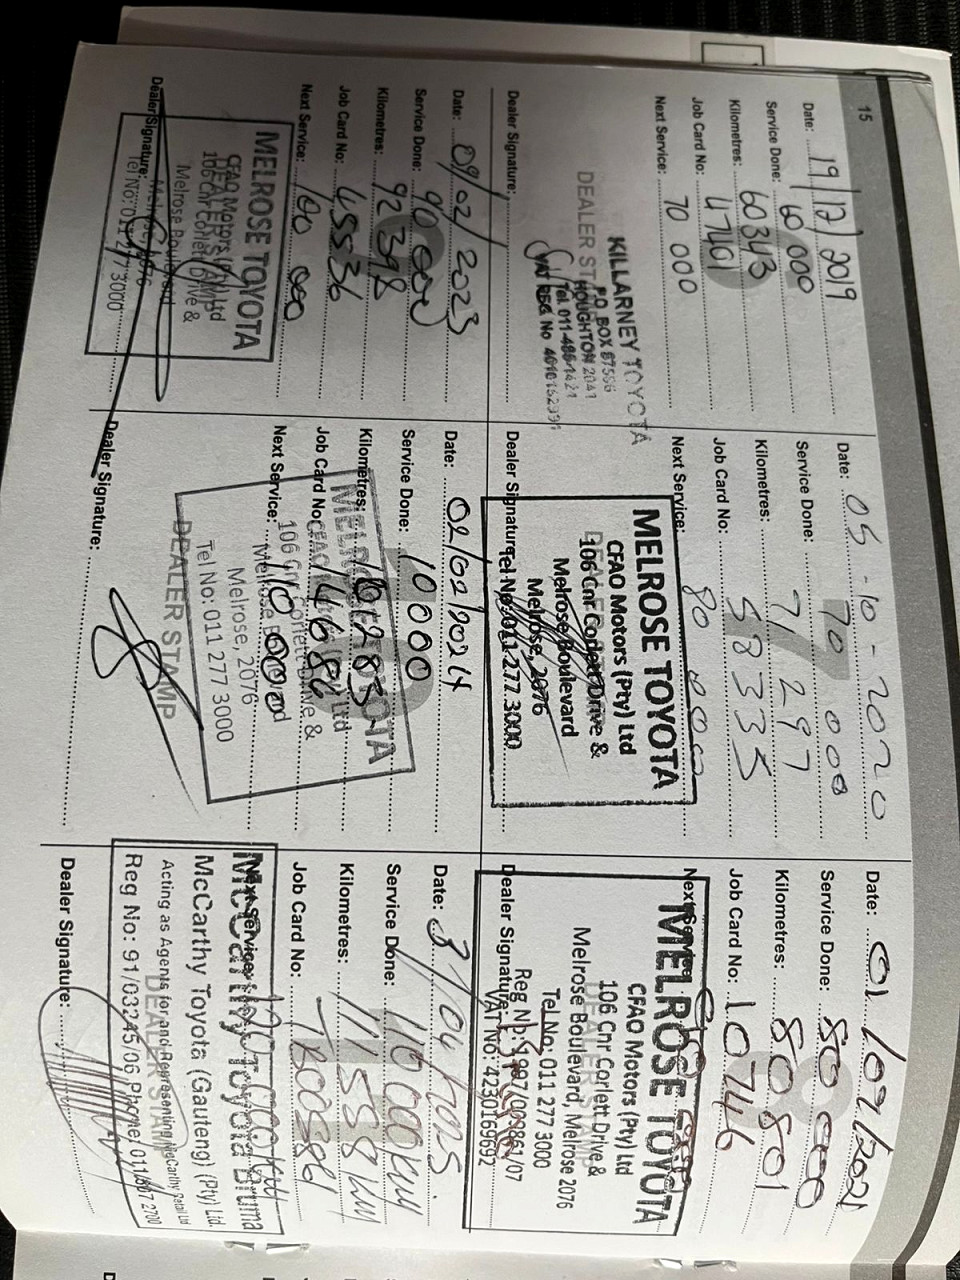 15
Date: 19/12/2019
Service Done: 60 000
Kilometres: 60343
Job Card No: 47401
Next Service: 70 000
KILLARNEY TOYOTA
P.O BOX 87596
DEALER ST HOUGHTON 2041
Tel. 011-486-1421
VAT REG No
Dealer Signature:
Date: 05-10-2020
Service Done: 70 000
Kilometres: 71297
Job Card No: 58335
Next Service: 80 000
MELROSE TOYOTA
CFAO Motors (Pty) Ltd
106 Cnr Corlett Drive &
Melrose Boulevard
Melrose, 2076
Tel No: 011 277 3000
Dealer Signature:
Date: 01/02/2021
Service Done: 80 000
Kilometres: 80801
Job Card No: 10746
Next Service:
MELROSE TOYOTA
CFAO Motors (Pty) Ltd
106 Cnr Corlett Drive &
Melrose Boulevard, Melrose 2076
Tel No: 011 277 3000
Reg No: 1997/009861/07
VAT No: 4230169692
Dealer Signature:
Date: 09/02/2023
Service Done: 90 000
Kilometres: 92398
Job Card No: 45536
Next Service: 100 000
MELROSE TOYOTA
CFAO Motors (Pty) Ltd
106 Cnr Corlett Drive &
Melrose Boulevard
Melrose, 2076
Tel No: 011 277 3000
Dealer Signature:
Date: 02/02/2024
Service Done: 10000
Kilometres:
Job Card No: 14686
Next Service: 110 000
MELROSE TOYOTA
106 Cnr Corlett Drive &
Melrose, 2076
Tel No: 011 277 3000
DEALER STAMP
Dealer Signature:
Date: 3/04/2025.
Service Done: 110 000km
Kilometres: 111558km
Job Card No:
Next Service: 120 000km
McCarthy Toyota Bruma
McCarthy Toyota (Gauteng) (Pty) Ltd
Acting as Agents for and Representing McCarthy Retail Ltd
DEALER STAMP
Reg No: 91/03245/06, Phone: 011
Dealer Signature: